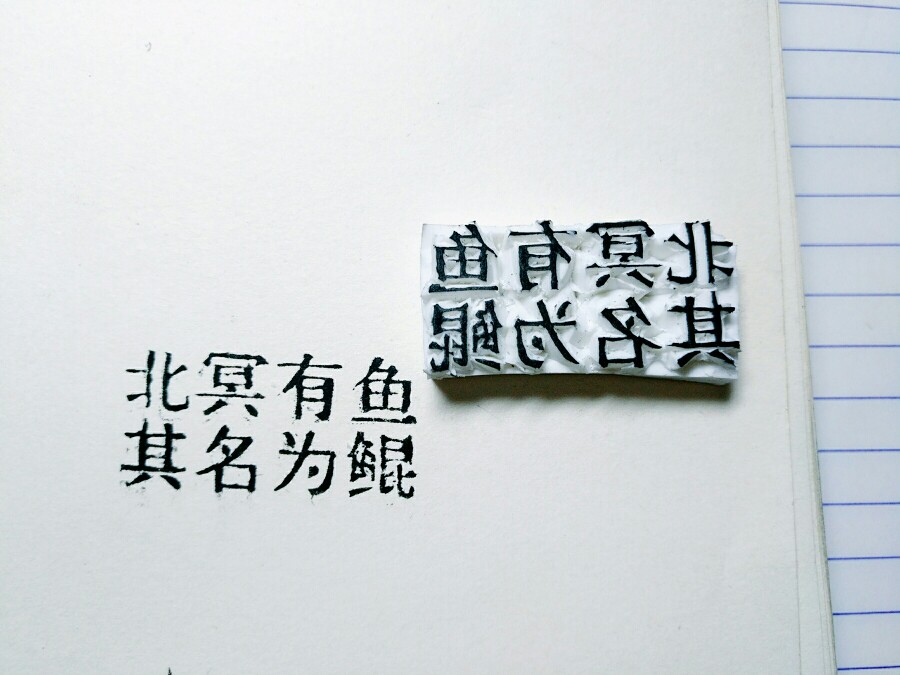 北冥有鱼
其名为鲲
北冥有鱼
其名为鲲